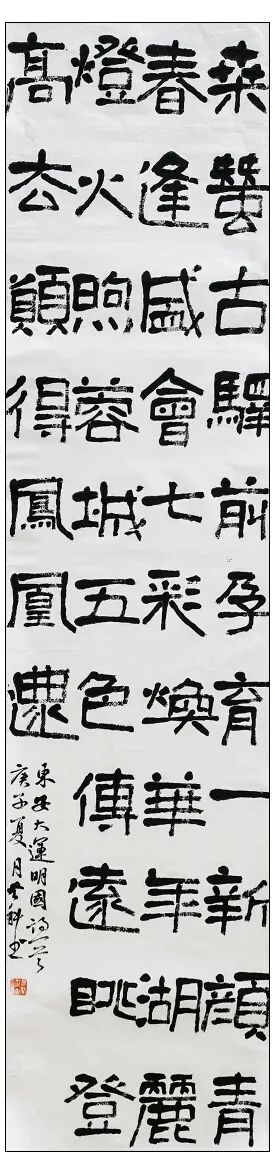 桑蠶古驛前孕育一新顏青
春逢盛會七彩煥華年湖麗
燈火煦蓉城五色傳遠眺登
高厺顛得鳳凰
東安大運明國詩一首
庚子夏月書